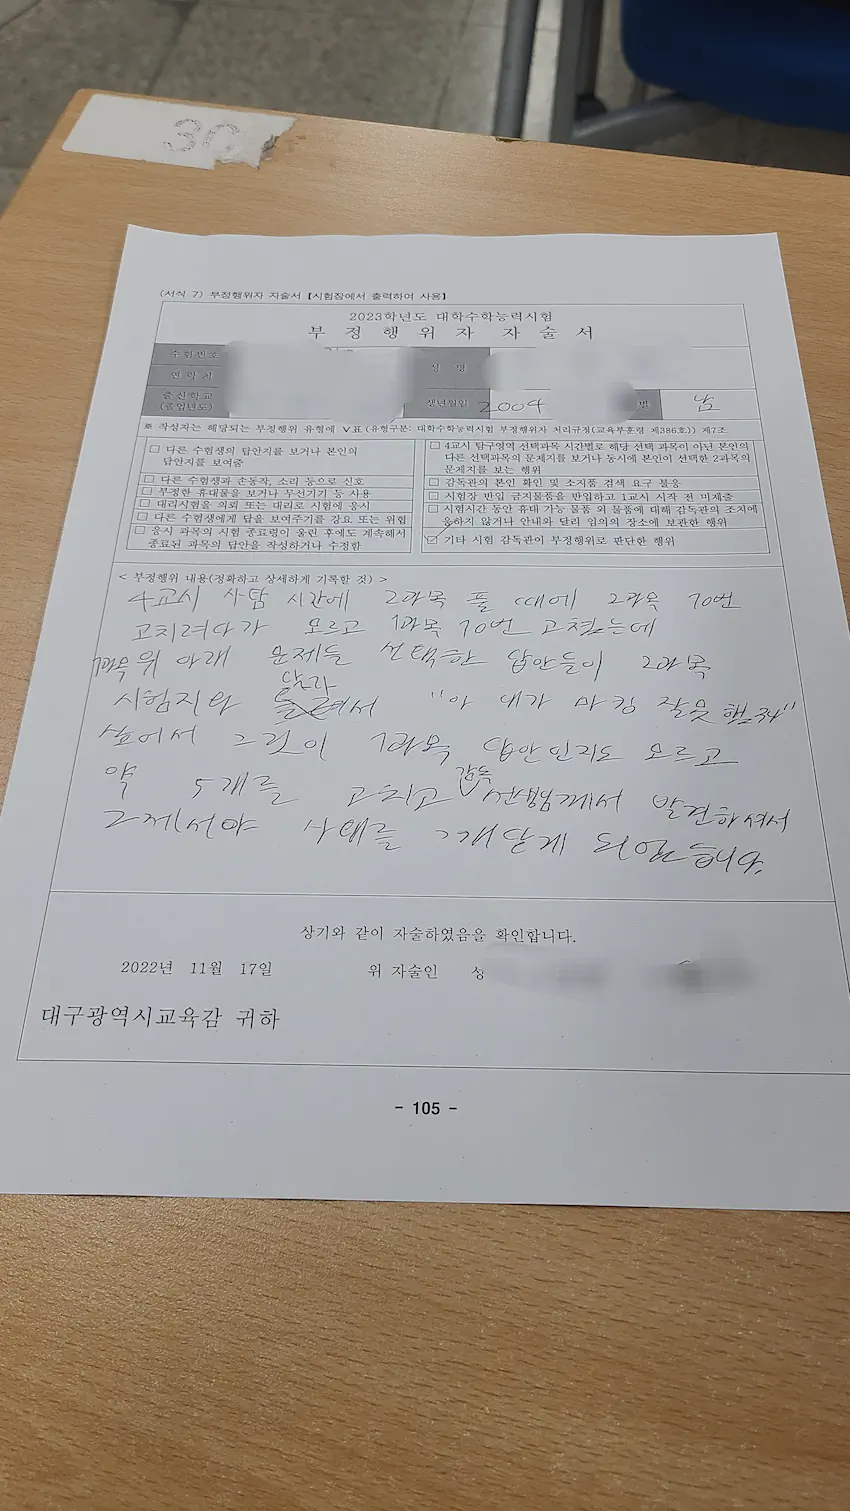 30
(서식 7) 부정행위자 자술서 【시험장에서 출력하여 사용】
2023학년도 대학수학능력시험
부 정 행 위 자 자 술 서
수험번호
성 명
연 락 처
출신학교
(졸업년도)
생년월일 2004
별 남
※ 작성자는 해당되는 부정행위 유형에 ∨표 (유형구분: 대학수학능력시험 부정행위자 처리규정(교육부훈령 제386호)) 제7조
□ 다른 수험생의 답안지를 보거나 본인의
답안지를 보여줌
□ 다른 수험생과 손동작, 소리 등으로 신호
□ 부정한 휴대물을 보거나 무선기기 등 사용
□ 대리시험을 의뢰 또는 대리로 시험에 응시
□ 다른 수험생에게 답을 보여주기를 강요 또는 위협
□ 응시 과목의 시험 종료령이 울린 후에도 계속해서
종료된 과목의 답안을 작성하거나 수정함
□ 4교시 탐구영역 선택과목 시간별로 해당 선택 과목이 아닌 본인의
다른 선택과목의 문제지를 보거나 동시에 본인이 선택한 2과목의
문제지를 보는 행위
□ 감독관의 본인 확인 및 소지품 검색 요구 불응
□ 시험장 반입 금지물품을 반입하고 1교시 시작 전 미제출
□ 시험시간 동안 휴대 가능 물품 외 물품에 대해 감독관의 조치에
응하지 않거나 안내와 달리 임의의 장소에 보관한 행위
☑ 기타 시험 감독관이 부정행위로 판단한 행위
< 부정행위 내용(정확하고 상세하게 기록할 것) >
4교시 사탐 시간에 2과목 풀 때에 2과목 10번
고치려다가 모르고 1과목 10번 고쳤는데
1과목 위 아래 문제들 선택한 답안들이 2과목
시험지와 달라서 "아 내가 마킹 잘못 했구나"
싶어서 그것이 1과목 답안인지도 모르고
약 5개를 고치고 감독 선생님께서 발견하셔서
그제서야 사태를 깨닫게 되었습니다.
상기와 같이 자술하였음을 확인합니다.
2022년 11월 17일 위 자술인 성
대구광역시교육감 귀하
- 105 -